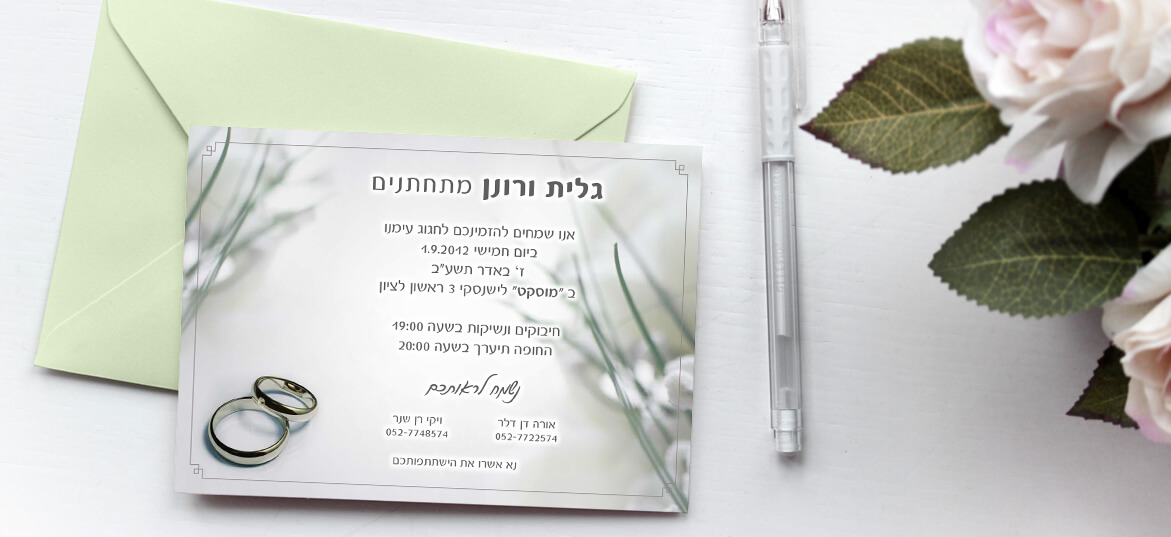 גלית ורונן מתחתנים
אנו שמחים להזמינכם לחגוג עימנו
ביום חמישי 1.9.2012
ז' באדר תשע"ב
ב "מוסקט" לישנסקי 3 ראשון לציון
חיבוקים ונשיקות בשעה 19:00
החופה תיערך בשעה 20:00
נשמח לראותכם
אורה דן דלר
052-7722574
ויקי רן שנר
052-7748574
נא אשרו את הישתתפותכם